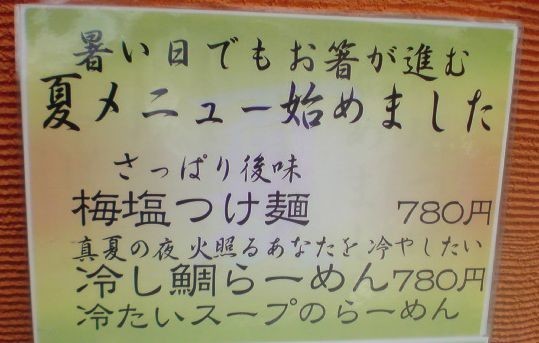 暑い日でもお箸が進む
夏メニュー始めました
さっぱり後味
梅塩つけ麺 780円
真夏の夜 火照るあなたを 冷やしたい
冷し鯛らーめん780円
冷たいスープのらーめん